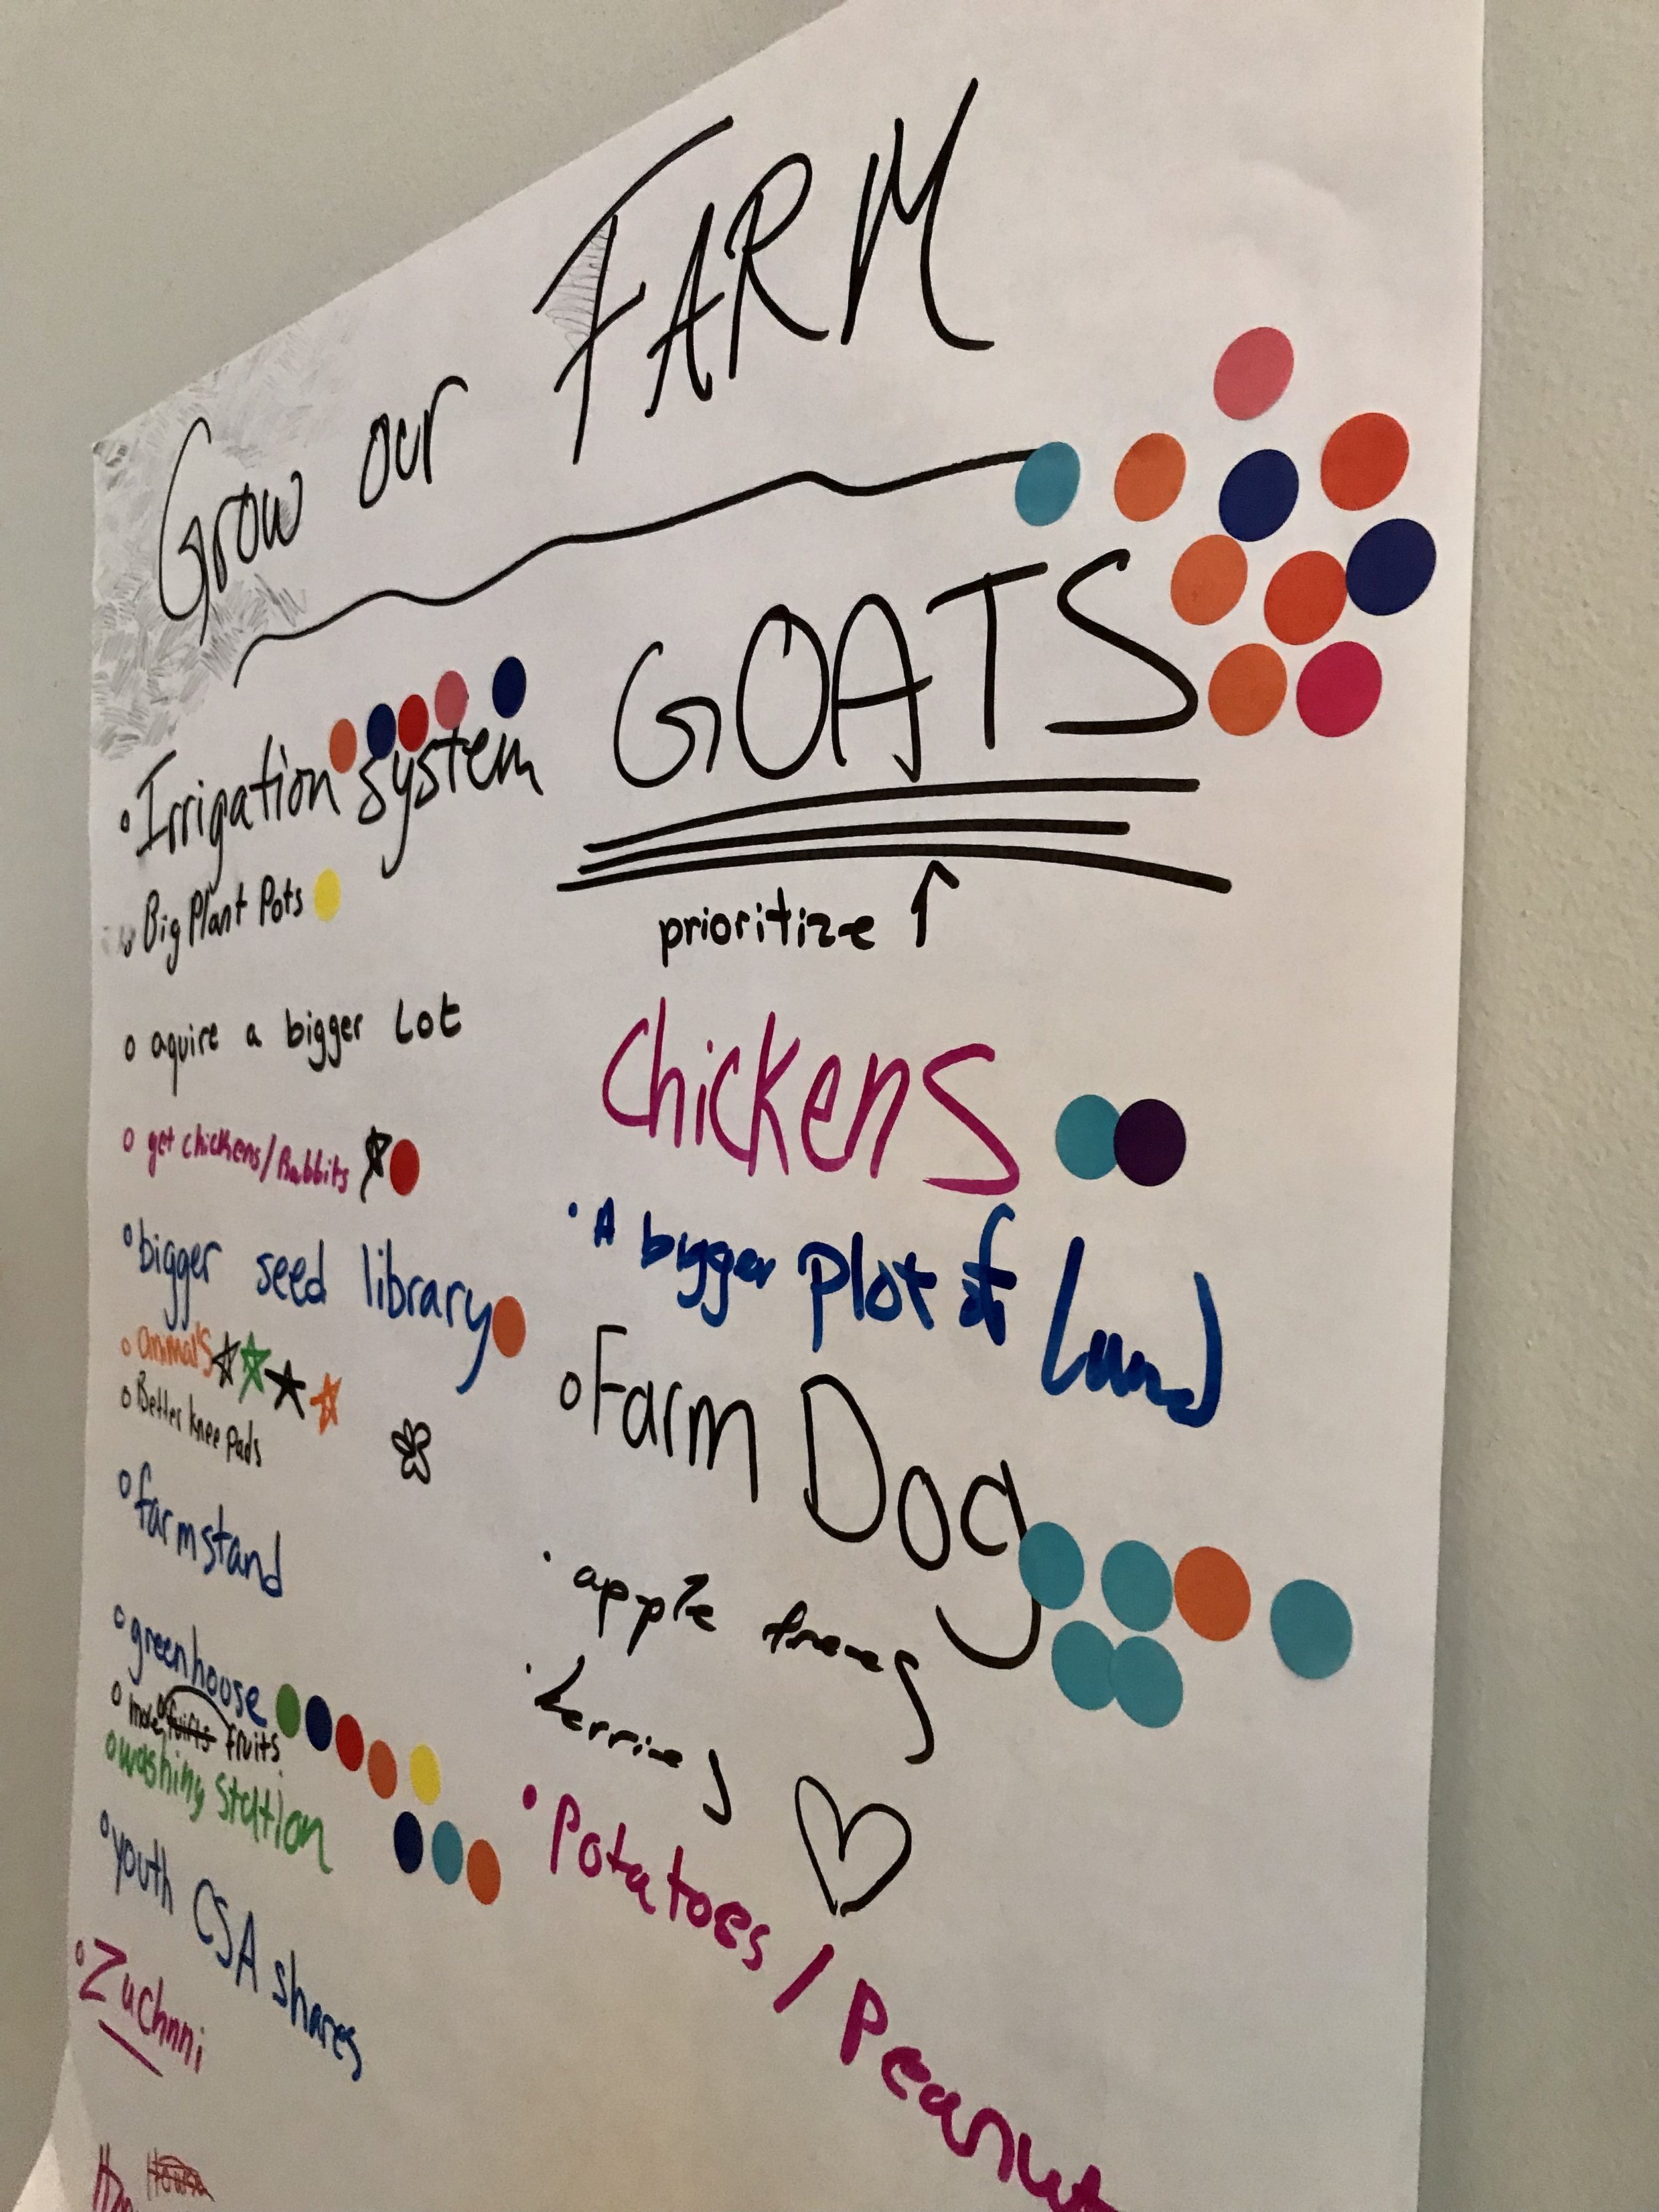 Grow our FARM
Irrigation system
Big Plant Pots
aquire a bigger Lot
get chickens/Rabbits
bigger seed library
animals
Better knee pads
farmstand
greenhouse
more fruits fruits
washing station
youth CSA shares
Zuchnni
GOATS
prioritize
chickens
A bigger plot of Land
Farm Dog
apple trees
berries
Potatoes / Peanut